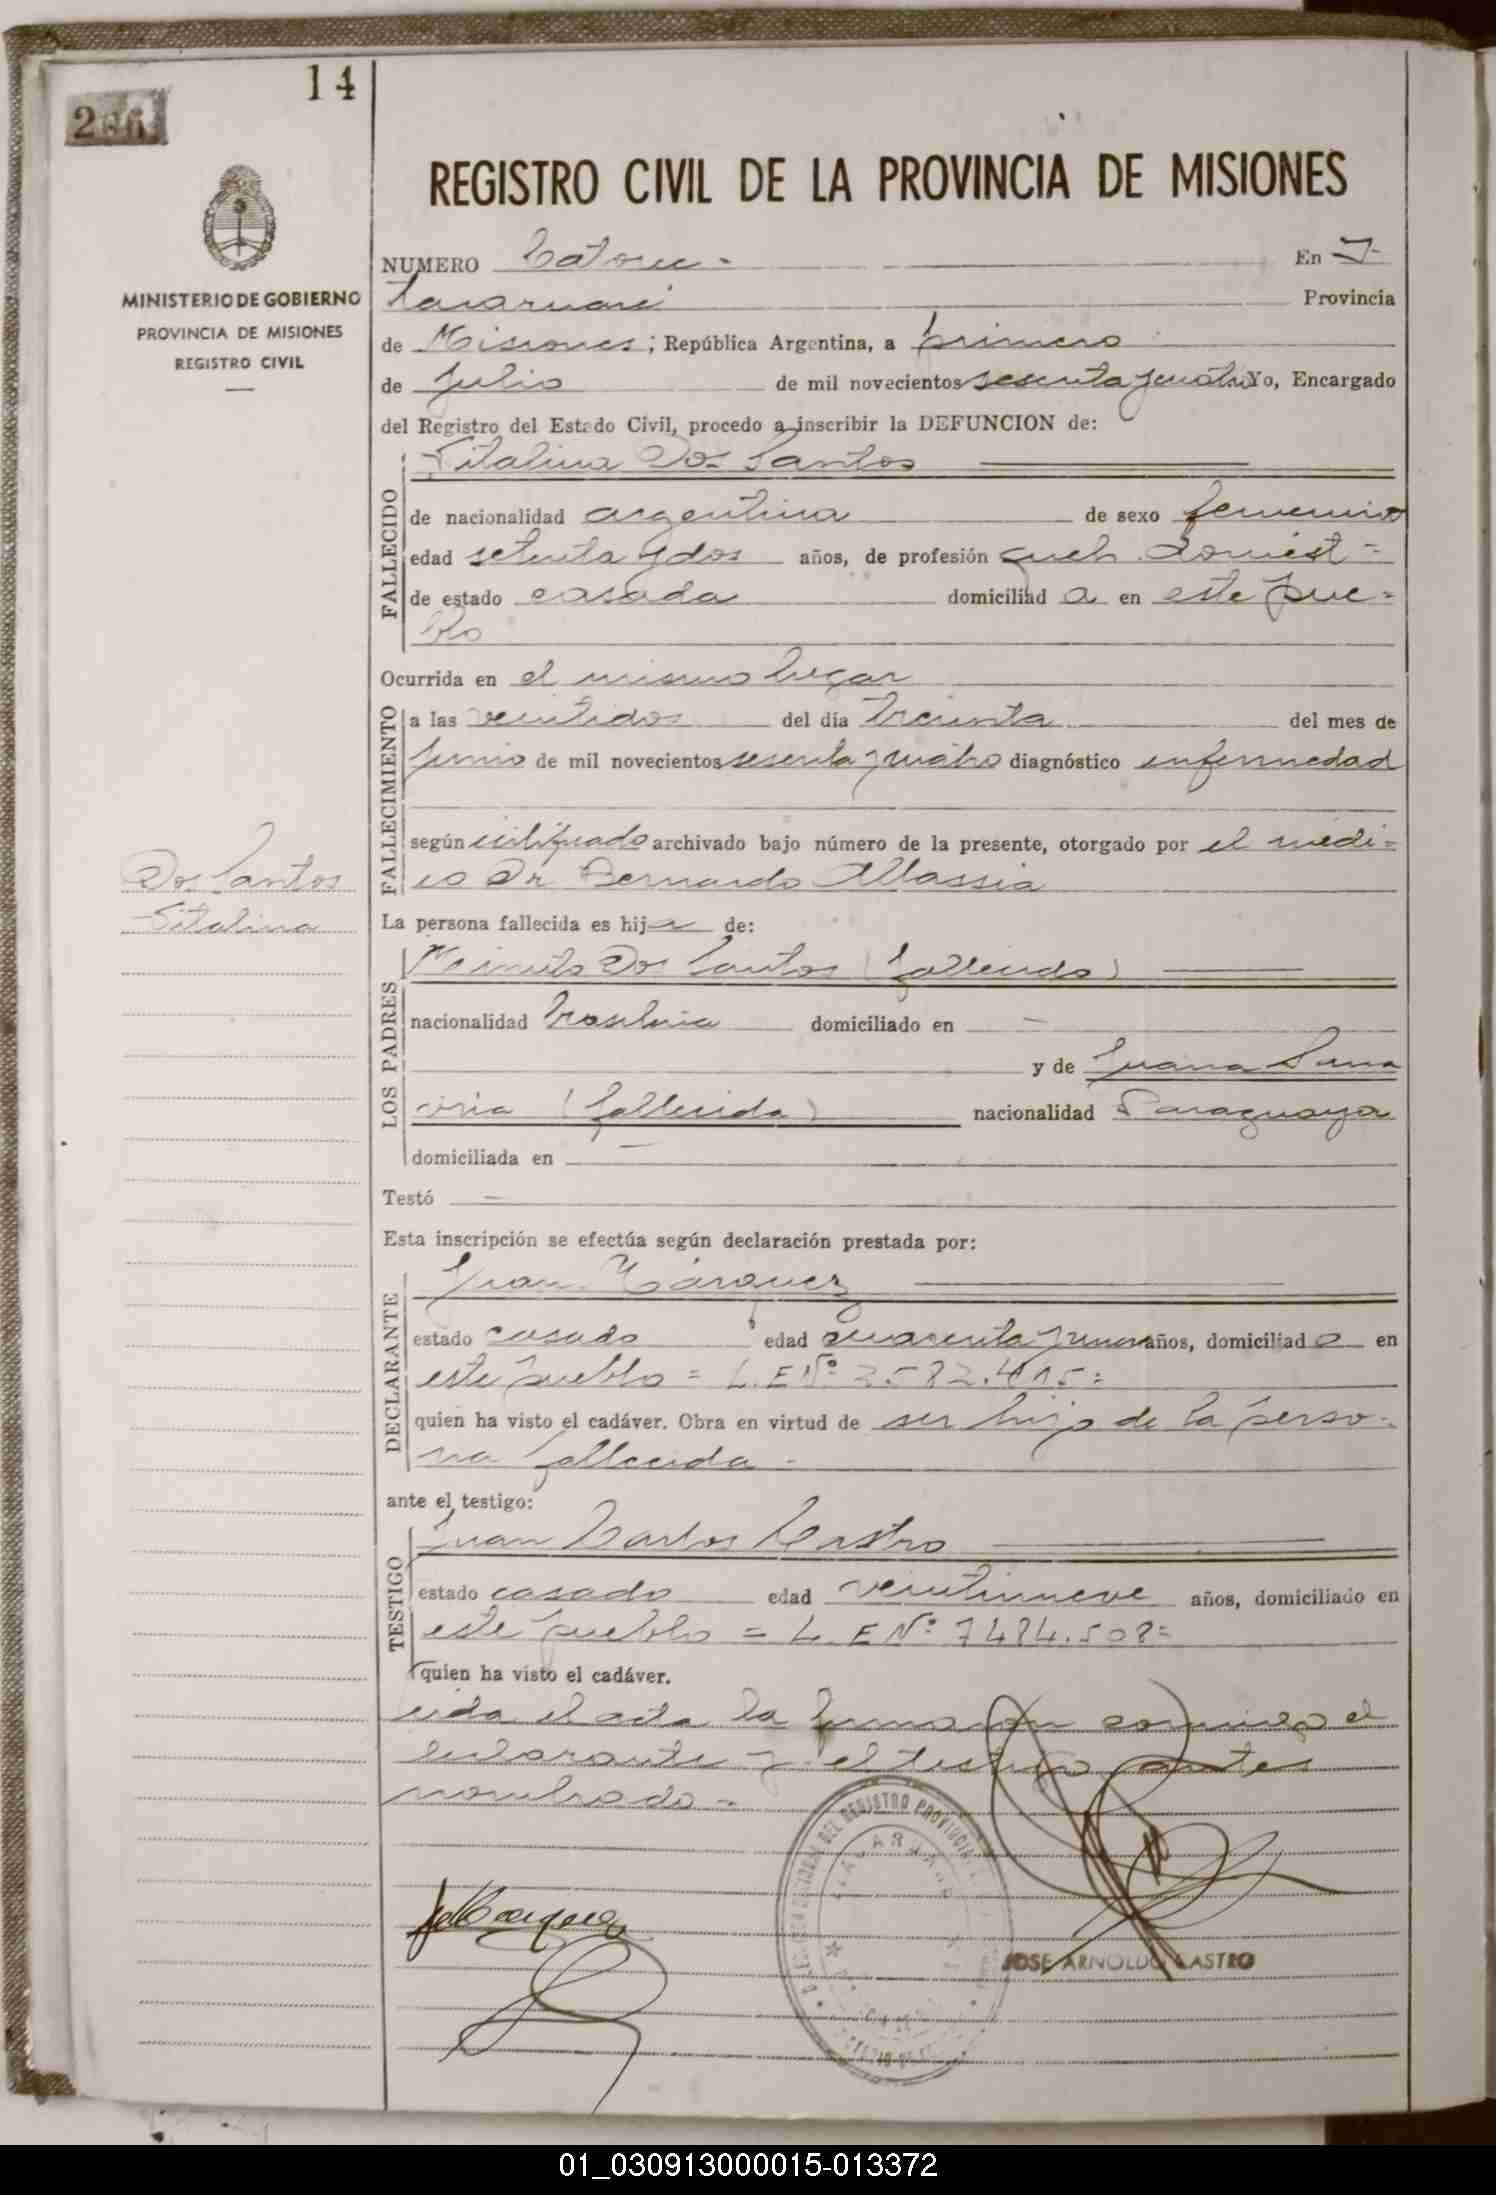 14
266
REGISTRO CIVIL DE LA PROVINCIA DE MISIONES
MINISTERIO DE GOBIERNO
PROVINCIA DE MISIONES
REGISTRO CIVIL
NUMERO Catorce.- En I-
tacaruaré Provincia
de Misiones; República Argentina, a primero
de Julio de mil novecientos sesenta y cuatro Yo, Encargado
del Registro del Estado Civil, procedo a inscribir la DEFUNCION de:
FALLECIDO
Dos Santos
de nacionalidad argentina de sexo femenino
edad setenta y dos años, de profesión queh. domést=
de estado casada domiciliad a en este pue=
blo
FALLECIMIENTO
Ocurrida en el mismo lugar
a las veintidos del día treinta del mes de
junio de mil novecientos sesenta y cuatro diagnóstico enfermedad
según certificado archivado bajo número de la presente, otorgado por el médi=
co Dr. Bernardo Allassia
Dos Santos
La persona fallecida es hija de:
LOS PADRES
Dos Santos (fallecido)
nacionalidad brasilera domiciliado en -
y de Juana Sana
vria (fallecida) nacionalidad Paraguaya
domiciliada en -
Testó -
Esta inscripción se efectúa según declaración prestada por:
DECLARANTE
Juan Márquez
estado casado edad cuarenta y años, domiciliad o en
este pueblo = L.E Nº 2582.415=
quien ha visto el cadáver. Obra en virtud de ser hijo de la perso-
na fallecida -
ante el testigo:
TESTIGO
Juan Carlos Castro
estado casado edad veintinueve años, domiciliado en
este pueblo = L.E Nº 7484.508=
quien ha visto el cadáver.
el acta la firmaron conmigo el
declarante y el testigo antes
nombrado-
DEL REGISTRO PROVINCIAL
JOSE ARNOLDO CASTRO
01_030913000015-013372